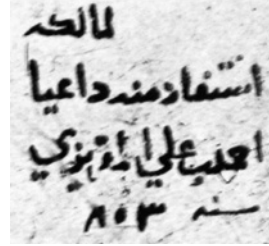 لمالكه
استفاد منه داعيا
احمد بن علي المقريزي
سنه ٨٠٣